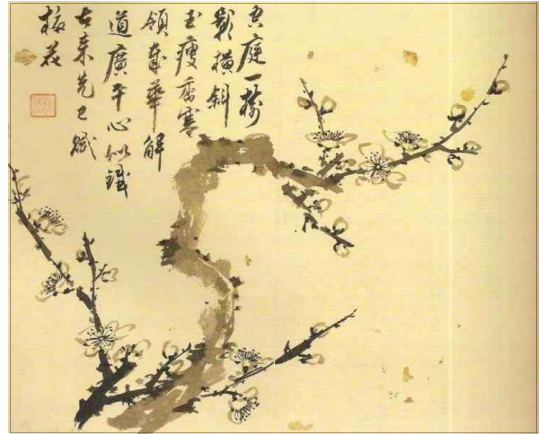 空庭一樹
影橫斜
玉瘦香寒
領歲華解
道廣平心似鐵
古來先已賦
梅花